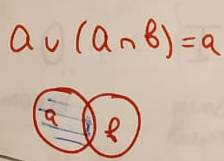 a ∪ (a ∩ b) = a
a b